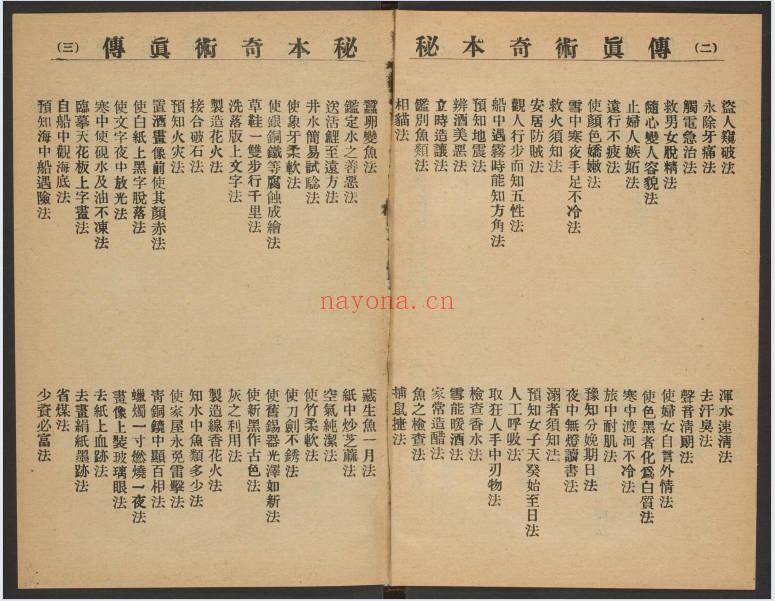 傳眞術奇本秘 (二)
盜人窺破法
永除牙痛法
觸電急治法
救男女脫精法
隨心變人容貌法
止婦人嫉妬法
遠行不疲法
使顏色嬌嫩法
雪中寒夜手足不冷法
救火須知法
安居防賊法
觀人行步而知五性法
船中遇霧時能知方角法
預知地震法
辨酒美惡法
立時造讓法
鑑別魚類法
相貓法
渾水速清法
去汗臭法
聲音淸朗法
使婦女自言外情法
使色黑者化爲白質法
寒中渡河不冷法
旅中耐肌法
豫知分娩期日法
夜中無燈讀書法
溺者須知法
預知女子天癸始至日法
人工呼吸法
取狂人手中刃物法
檢查香水法
雪能暖酒法
家常造醋法
魚之檢查法
捕鼠捷法
秘本奇術眞傳 (三)
蠶卵變魚法
鑑定水之善惡法
送活鯉至遠方法
井水簡易試驗法
使象牙柔軟法
使銀銅鐵等腐蝕成繪法
草鞋一雙步行千里法
洗落版上文字法
製造花火法
接合破石法
預知火灾法
置酒畫像前使其顏赤法
使白紙上黑字脫落法
使文字夜中放光法
寒中使硯水及油不凍法
臨摹天花板上字畫法
自船中觀海底法
預知海中船遇險法
藏生魚一月法
紙中炒芝蔴法
空氣純潔法
使竹柔軟法
使刀劍不銹法
使舊錫器光澤如新法
使新黑作古色法
灰之利用法
製造線香花火法
知水中魚類多少法
使家屋永免雷擊法
靑銅鏡中顯百相法
蠟燭一寸燃燒一夜法
畫像上裝玻璃眼法
去紙上血跡法
去畫絹紙墨跡法
省煤法
少資必富法
nayona.cn